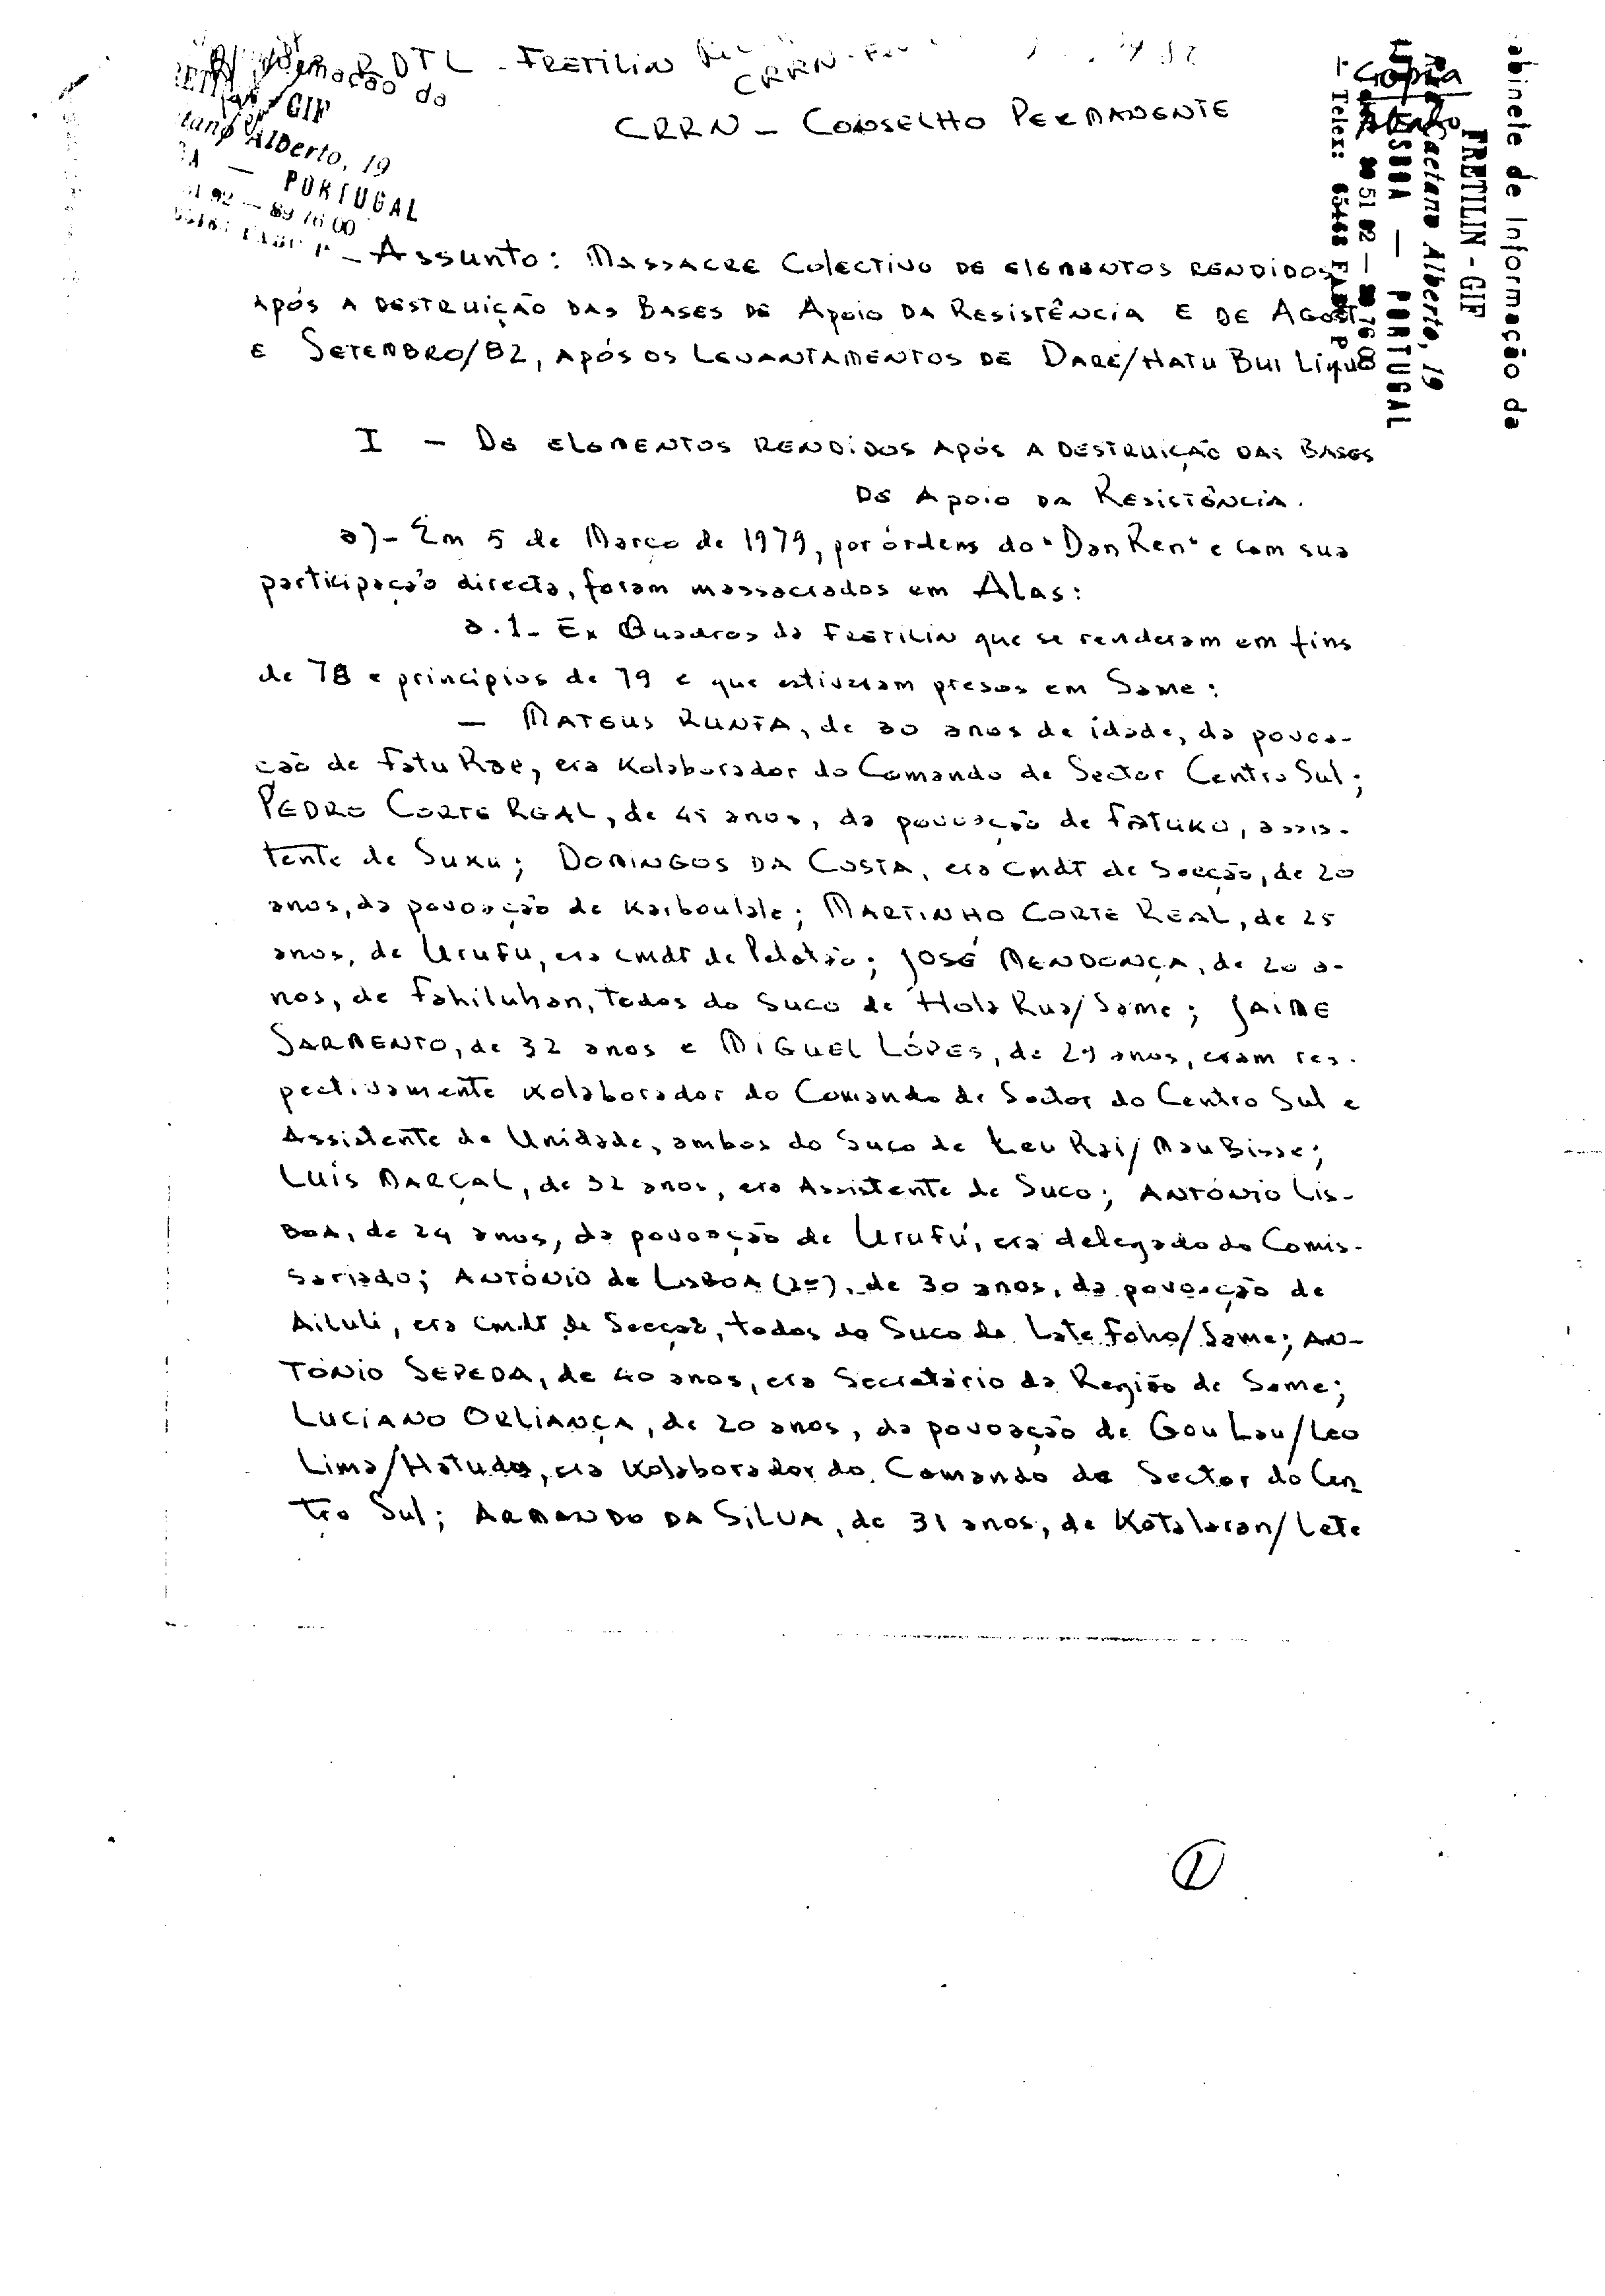 RDTL - FRETILIN
CRRN
CRRN - CONSELHO PERMANENTE
Informação da
GIF
Alberto, 19
PORTUGAL
Cópia
abinete de Informação da
FRETILIN - GIF
aetano Alberto, 19
PORTUGAL
Telex:
- Assunto: MASSACRE COLECTIVO DE ELEMENTOS RENDIDOS
APÓS A DESTRUIÇÃO DAS BASES DE APOIO DA RESISTÊNCIA E DE AGOST
E SETEMBRO/82, APÓS OS LEVANTAMENTOS DE DARE/HATU BUI LIQU
I - DE ELEMENTOS RENDIDOS APÓS A DESTRUIÇÃO DAS BASES
DE APOIO DA RESISTÊNCIA.
a)- Em 5 de Março de 1979, por órdens do "Dan Ken" e com sua
participação directa, foram massacrados em Alas:
a.1- Ex Quadros da FRETILIN que se renderam em fins
de 78 e princípios de 79 e que estiveram presos em Same:
- MATEUS RUNTA, de 30 anos de idade, da povoa-
ção de Fatu Rae, era Kolaborador do Comando de Sector Centro Sul;
PEDRO CORTE REAL, de 45 anos, da povoação de FATUKO, assis-
tente de Suku; DOMINGOS DA COSTA, era cmdt de Secção, de 20
anos, da povoação de Karboulale; MARTINHO CORTE REAL, de 25
anos, de Urufu, era cmdt de Pelotão; JOSÉ MENDONÇA, de 20 a-
nos, de Fahiluhan, todos do Suco de Hola Rua/Same; JAIME
SARMENTO, de 32 anos e MIGUEL LÓPES, de 29 anos, eram res-
pectivamente Kolaborador do Comando de Sector do Centro Sul e
Assistente de Unidade, ambos do Suco de Leu Rai/MauBisse;
LUÍS MARÇAL, de 32 anos, era Assistente de Suco; ANTÓNIO LIS-
BOA, de 24 anos, da povoação de Urufú, era delegado do Comis-
sariado; ANTÓNIO de LISBOA (2º), de 30 anos, da povoação de
Ailuli, era cmdt de Secção, todos do Suco de Lete Foho/Same; AN-
TÓNIO SEPEDA, de 40 anos, era Secretário da Região de Same;
LUCIANO ORLIANÇA, de 20 anos, da povoação de Gou Lau/Leo
Lima/Hatudo, era Kolaborador do Comando de Sector do Cen
tro Sul; ARMANDO DA SILVA, de 31 anos, de Kotalaran/Lete
1